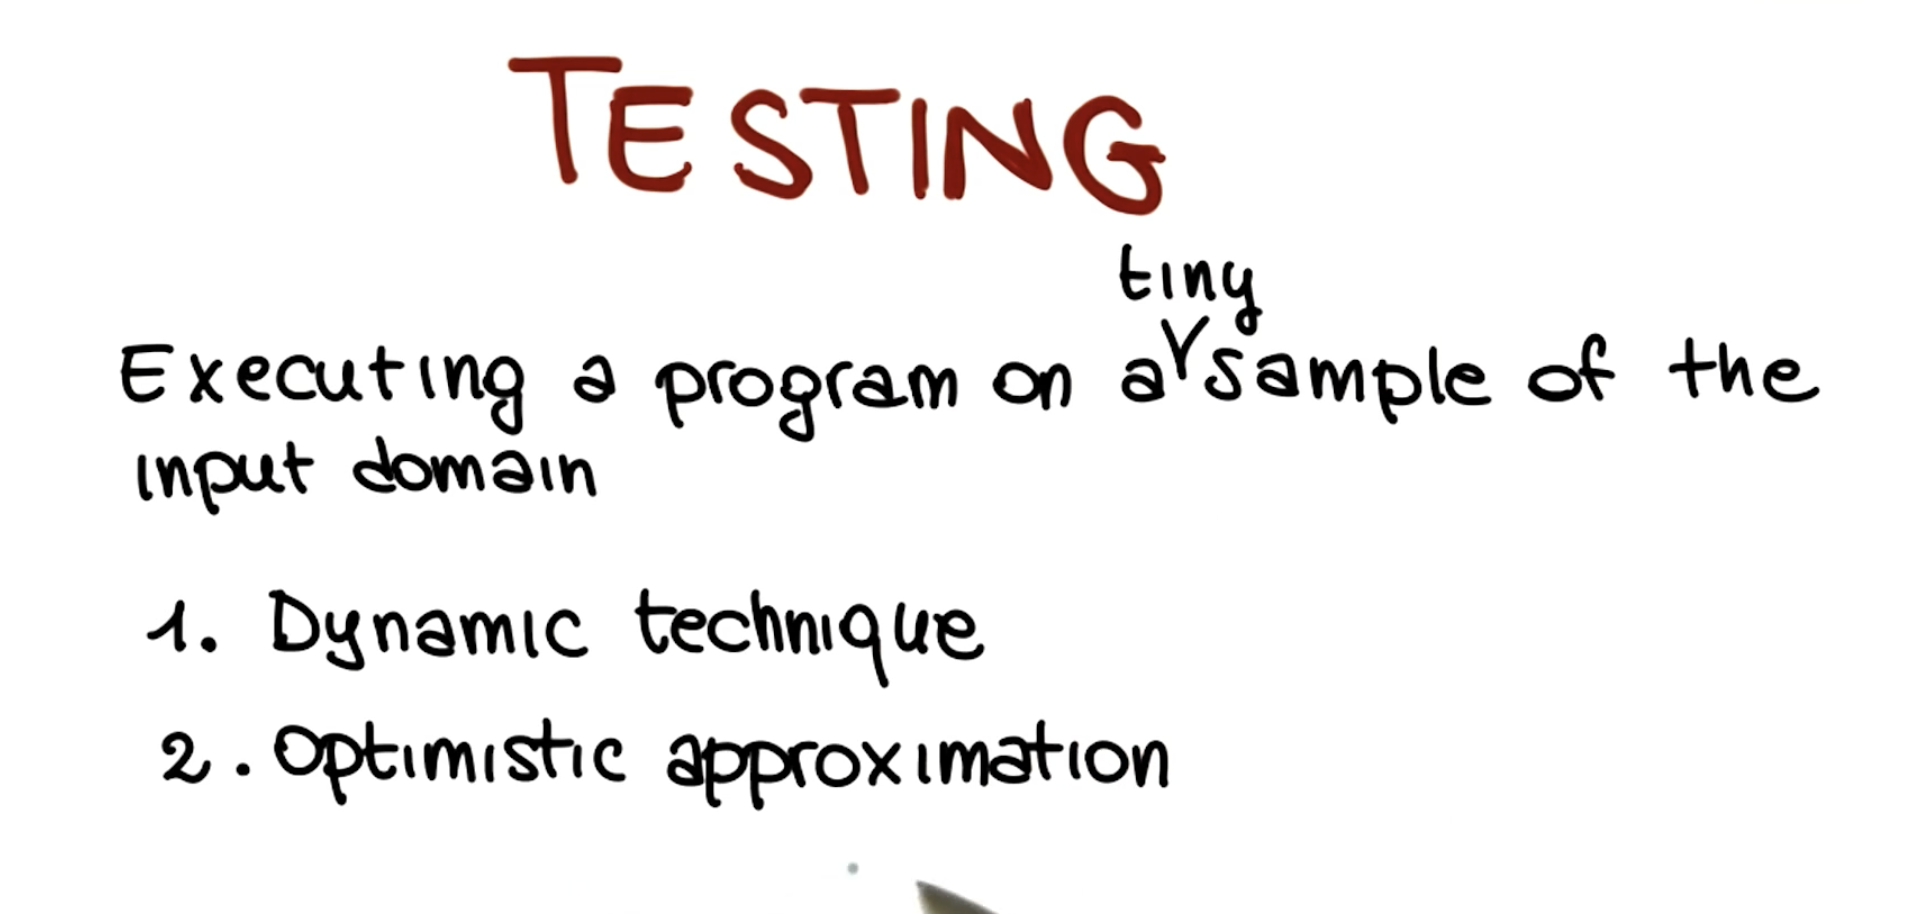 TESTING
tiny
Executing a program on a sample of the
input domain
1. Dynamic technique
2. Optimistic approximation